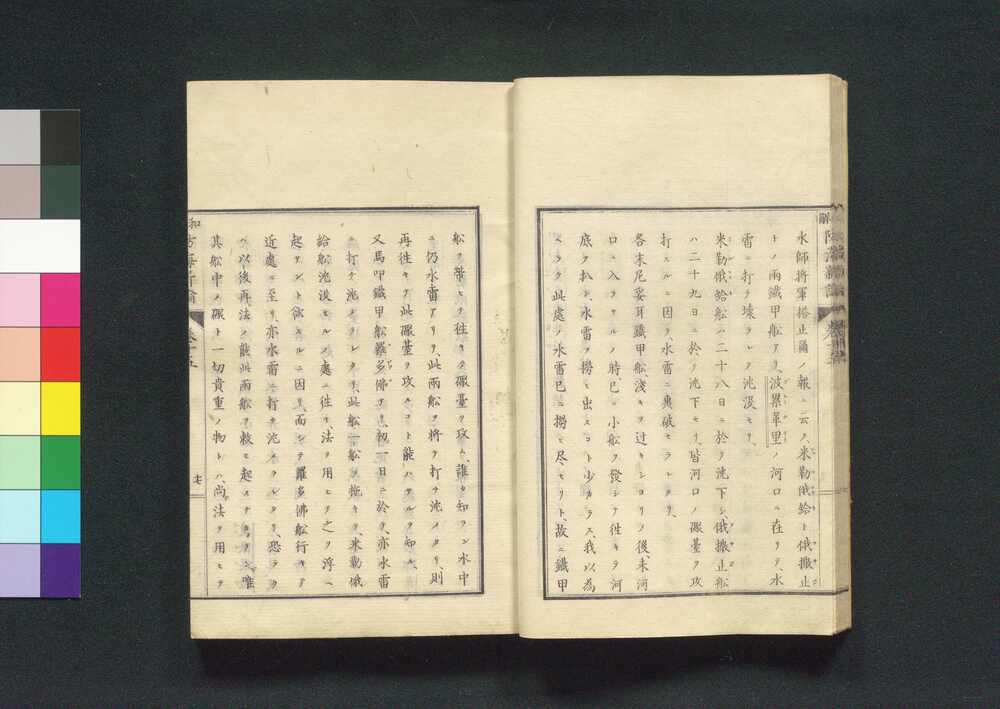 水師將軍搭止爾ノ報ニ云フ、米勒俄蛤ト俄撒止
トノ兩鐵甲舩アリ、波畧革里ノ河口ニ在リテ、水
雷ニ打チ壊ラレテ沈没セリ、
米勒俄蛤舩ハ二十八日ニ於テ沈下シ、俄撒止舩
ハ二十九日ニ於テ沈下セリ、皆河口ノ礟臺ヲ攻
打スルニ因テ、水雷ニ轟破セラレタリ、
各木尾妥耳鐵甲舩淺キヲ过キシヨリノ後、未河
口ニ入ラサルノ時、已ニ小舩ヲ發シテ徃キテ河
底ヲ扒シ、水雷ヲ撈シ出スコト少カラス、我以為
ヘラク此處ノ水雷已ニ撈シ尽セリト、故ニ鐵甲
舩ヲ帶セテ徃キテ礟臺ヲ攻ム、誰カ知ラン水中
ニ仍水雷アリテ、此兩舩ヲ將テ打チ沈メタリ、則
再徃キテ此礟臺ヲ攻ルコト能ハサルヲ知ル、
又馬呷鐵甲舩羅多佛アリ、初一日ニ於テ、亦水雷
ニ打チ沈メラレタリ、此舩一舩ヲ拖キテ、米勒俄
蛤舩沈没セルノ處ニ徃キ、法ヲ用ヒテ之ヲ浮ヘ
起サント欲スルニ因リ、而シテ羅多佛舩行キテ
近處ニ至リ、亦水雷ニ打チ沈メラレタリ、恐ラク
ハ以後再法ノ能此兩舩ヲ救ヒ起スナカラン、唯
其舩中ノ礟ト一切貴重ノ物トハ、尚法ヲ用ヒテ
卷十五